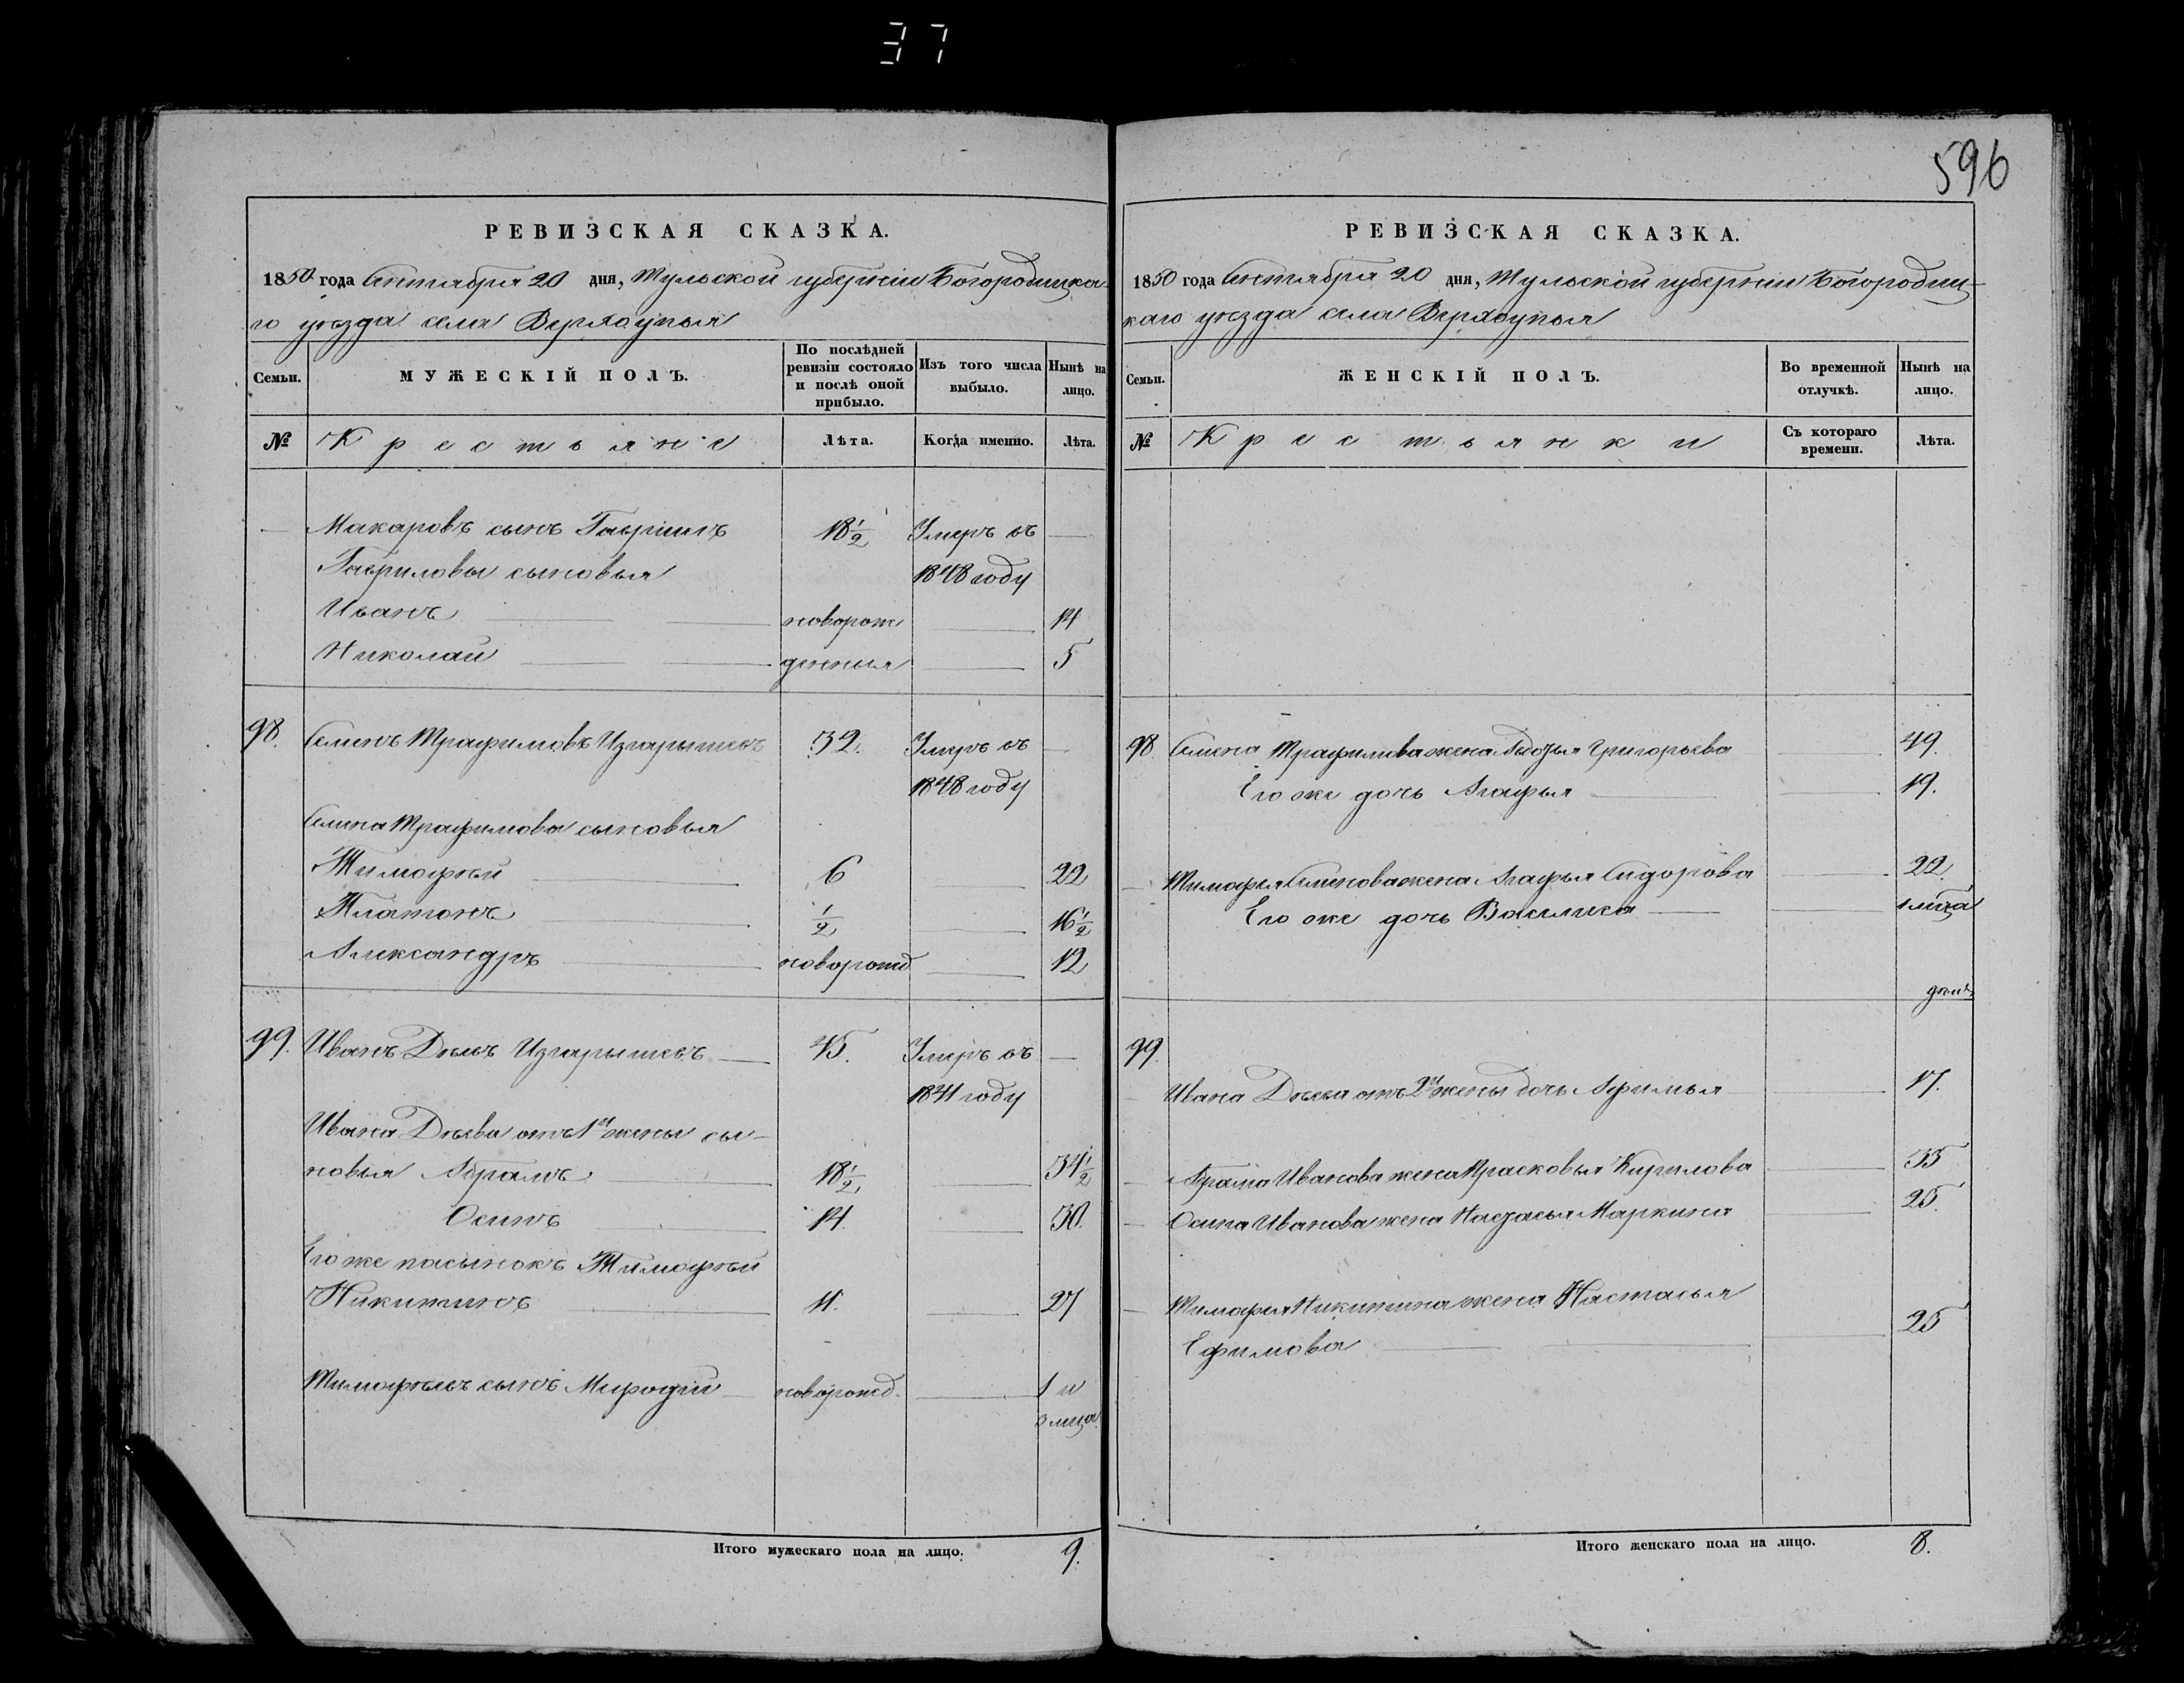 37
596
РЕВИЗСКАЯ СКАЗКА.
1850 года Сентября 20 дня, Тульской губерніи Богородицка-
го уѣзда села Верхоупья
Семьи. МУЖЕСКІЙ ПОЛЪ. По послѣдней ревизіи состояло и послѣ оной прибыло. Изъ того числа выбыло. Нынѣ на лицо.
№ Крестьяне Лѣта. Когда именно. Лѣта.
Макаровъ сынъ Гаврилъ 18½ Умеръ въ
Гавриловы сыновья 1848 году
Иванъ новорож 14
Николай денныя 5
98. Семенъ Трафимовъ 32. Умеръ въ
1848 году
Семена Трафимова сыновья
Тимофѣй 6 22
Платонъ ½ 16½
Александръ новорожд 12
99. Иванъ 45. Умеръ въ
1841 году
Ивана от 1й жены сы-
новья Абрамъ 18½ 34½
Осипъ 14. 30.
Его же пасынокъ Тимофѣй
Никитинъ 11. 27
Тимофѣевъ сынъ новорожд. 1 и
3 мѣца
Итого мужескаго пола на лицо. 9.
РЕВИЗСКАЯ СКАЗКА.
1850 года Сентября 20 дня, Тульской губерніи Богородиц-
каго уѣзда села Верхоупья
Семьи. ЖЕНСКІЙ ПОЛЪ. Во временной отлучкѣ. Нынѣ на лицо.
№ Крестьянки Съ котораго времени. Лѣта.
98 Семена Трафимова жена Григорьева 49.
Его же дочь Агафья 19.
Тимофея Семенова жена Агафья Сидорова 22.
Его же дочь Василиса
99.
Ивана отъ 2й жены дочь Афимья 17.
Абрама Иванова жена Прасковья Кирилова 33
Осипа Иванова жена Настасья Маркина 25.
Тимофея Никитина жена Настасья
Ефимова 25
Итого женскаго пола на лицо. 8.